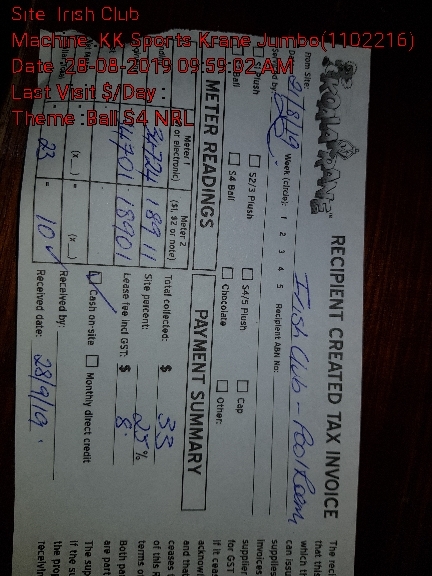 Site Irish Club
Machine: KK Sports Krane Jumbo(1102216)
Date :28-08-2019 09:59:02 AM
Last Visit $/Day :
Theme :Ball S4 NRL
KOALA KRANE
RECIPIENT CREATED TAX INVOICE
From Site: Irish Club - Pool Room
28/8/19 Week (circle): 1 2 3 4 5 Recipient ABN No:
Plush S2/3 Plush S4/5 Plush Cap
Ball S4 Ball Chocolate Other:
METER READINGS
Meter 1
or electronic)
Meter 2
($1, $2 or note)
34724 18911
34701 18901
(x ) (x )
23 = 10
PAYMENT SUMMARY
Total collected: $ 33
Site percent: 25%
Lease fee incl GST: $ 8.
Cash on-site Monthly direct credit
Received by:
Received date: 28/9/19
The reci
that this
which th
can issu
supplies
invoices
supplier
for GST
if it cea
acknow
and tha
ceases
of this R
terms o
Both pa
are part
The sup
if the su
the prop
receivin